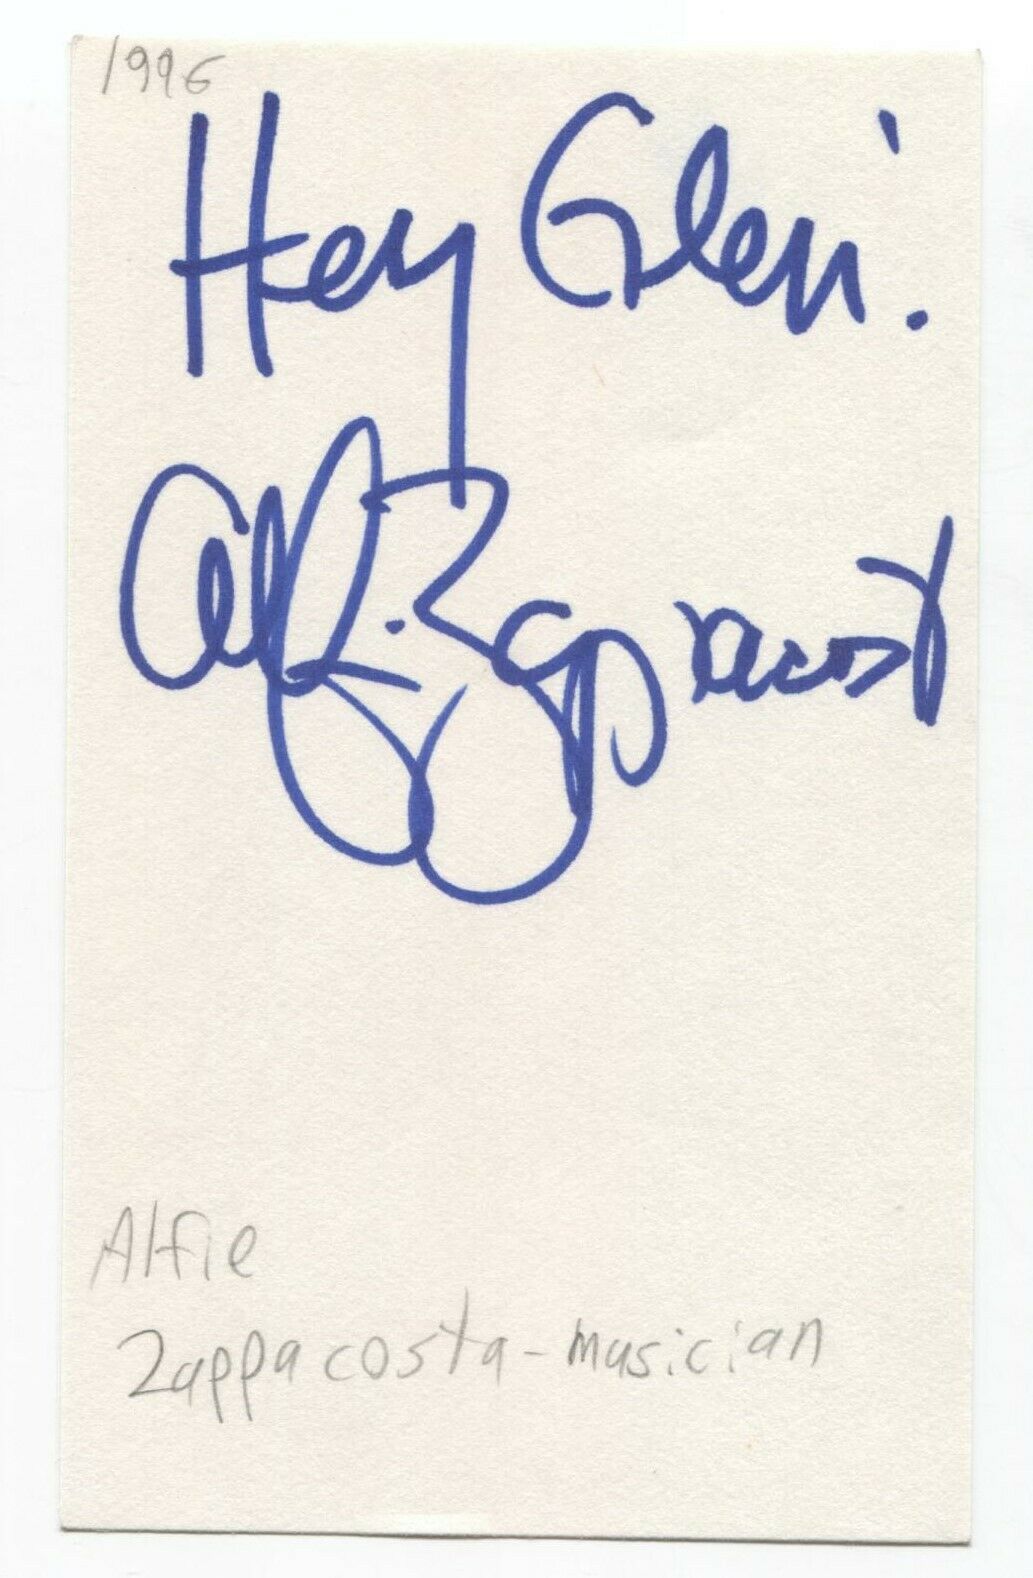 1996
Hey Glen!
Alfie Zappacosta
Alfie
Zappacosta - musician